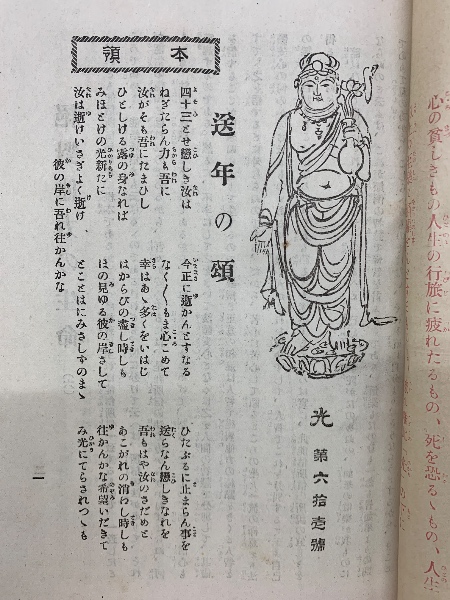 心の貧しきもの人生の行旅に疲れたるもの、死を恐るゝもの、人生
光 第六拾壹號
本領
送年の頌
四十三とせ戀しき汝は 今正に逝かんとすなる ひたぶるに止まらん事を
ねぎたらん力も吾に なくゝもま心こめて 送らなん戀しきなれを
汝がそも吾にたまひし 幸はあゝ多くをいはじ 吾もはや汝のさだめと
ひとしける露の身なれば はからひの盡し時しも あこがれの消けし時しも
みほとけの光新たに ほの見ゆる彼の岸さして 往かんかな希望いだきて
汝は逝けいさぎよく逝け、 とことはにみさしずのまゝ み光にてらされつゝも
彼の岸に吾れ往かんかな
二